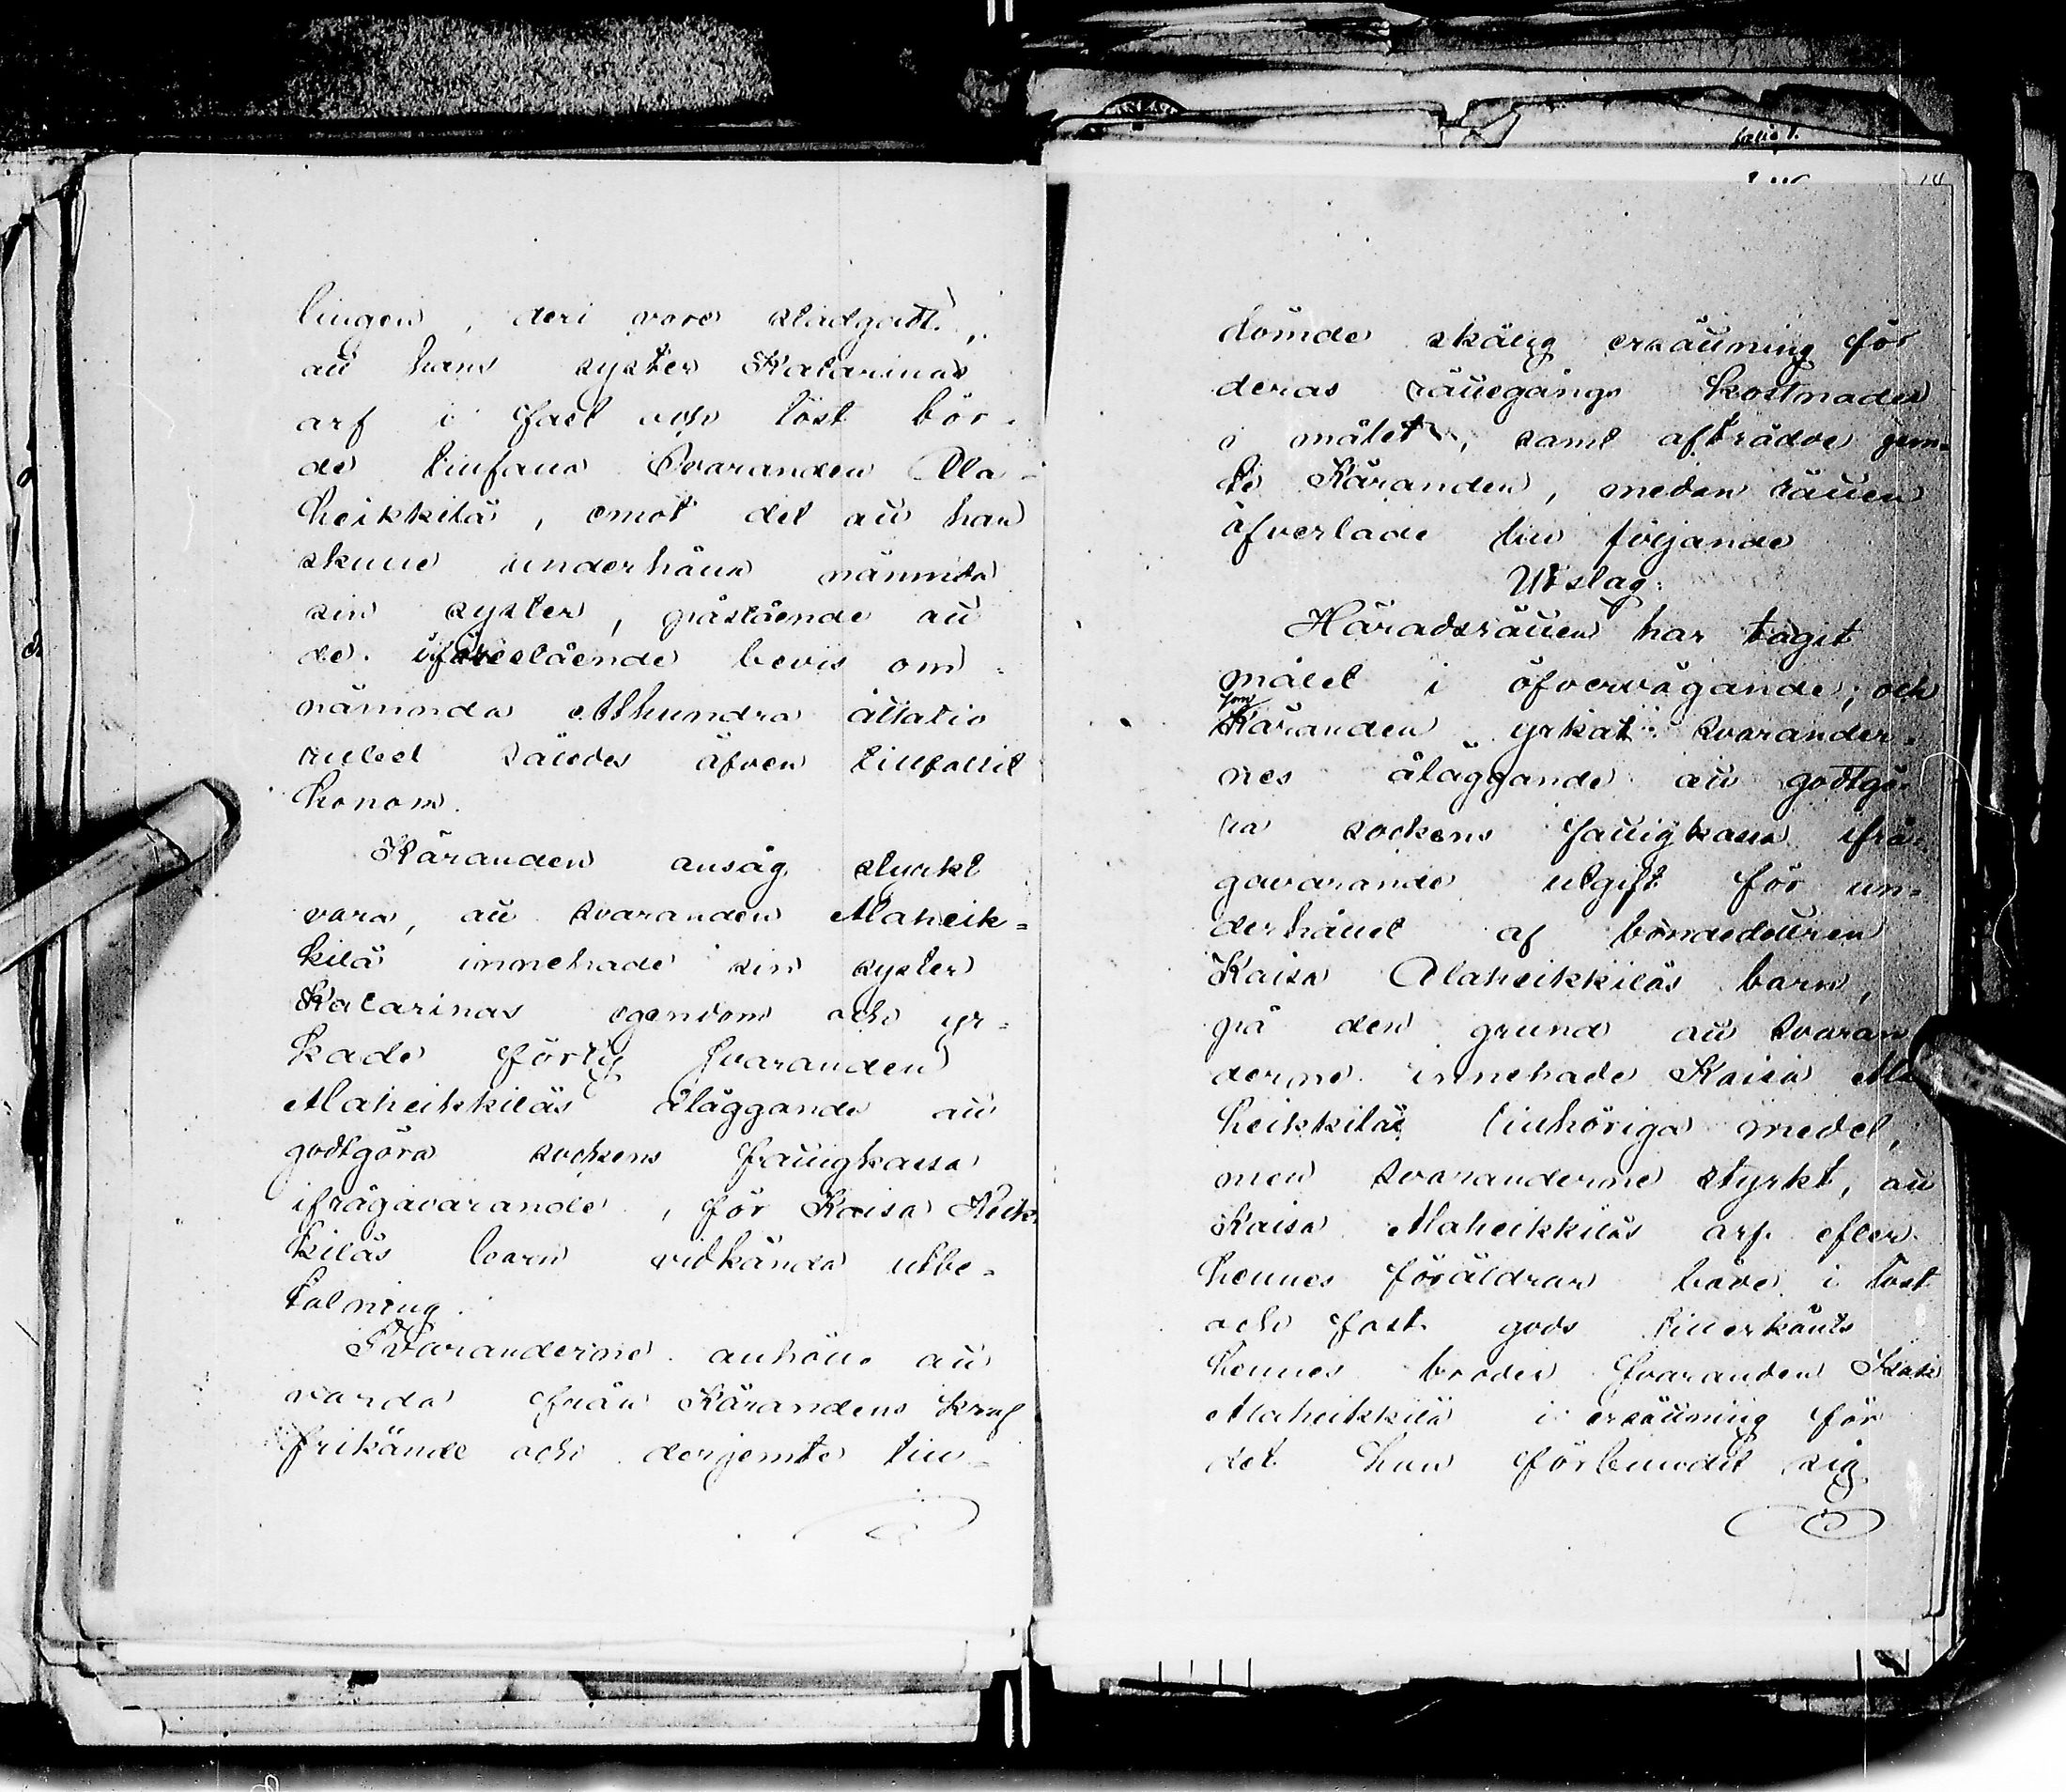 lingen, deri vore stadgadt,
att hans syster Katarinas
arf i fast och löst bör-
de tillfalla Svaranden Ala-
heikkilä, emot det att han
skulle underhålla nämnda
sin syster, påstående att
de ifrågastående bevis om-
nämnda Etthundra åttatio
rubel således äfven tillfallit
honom.
Käranden ansåg styrkt
vara, att svaranden Alaheik-
kilä innehade sin syster
Katarinas egendom och yr-
kade förty svaranden
Alaheikkiläs åläggande att
godtgöra sockens fattigkassa
ifrågavarande, för Kaisa Heik-
kiläs barn vidkända utbe-
talning.
Svaranderne anhöllo att
varda från Kärandens kraf
frikände och derjemte till-
dömde skälig ersättning för
deras rättegångs kostnader
i målet, samt afträdde jem-
te Käranden, medan rätten
öfverlade till följande
Utslag:
Häradsrätten har tagit
målet i öfvervägande; och
som
Käranden yrkat svarander-
nes åläggande att godtgö-
ra sockens fattigkassa ifrå-
gavarande utgift för un-
derhållet af bondedottren
Kaisa Alaheikkiläs barn,
på den grund att svaran
derne innehade Kaisa Ala
heikkiläs tillhöriga medel,
men svaranderne styrkt, att
Kaisa Alaheikkiläs arf efter
hennes föräldrar både i löst
och fast gods tillerkänts
hennes broder svaranden
Alaheikkilä i ersättning för
det han förbundit sig